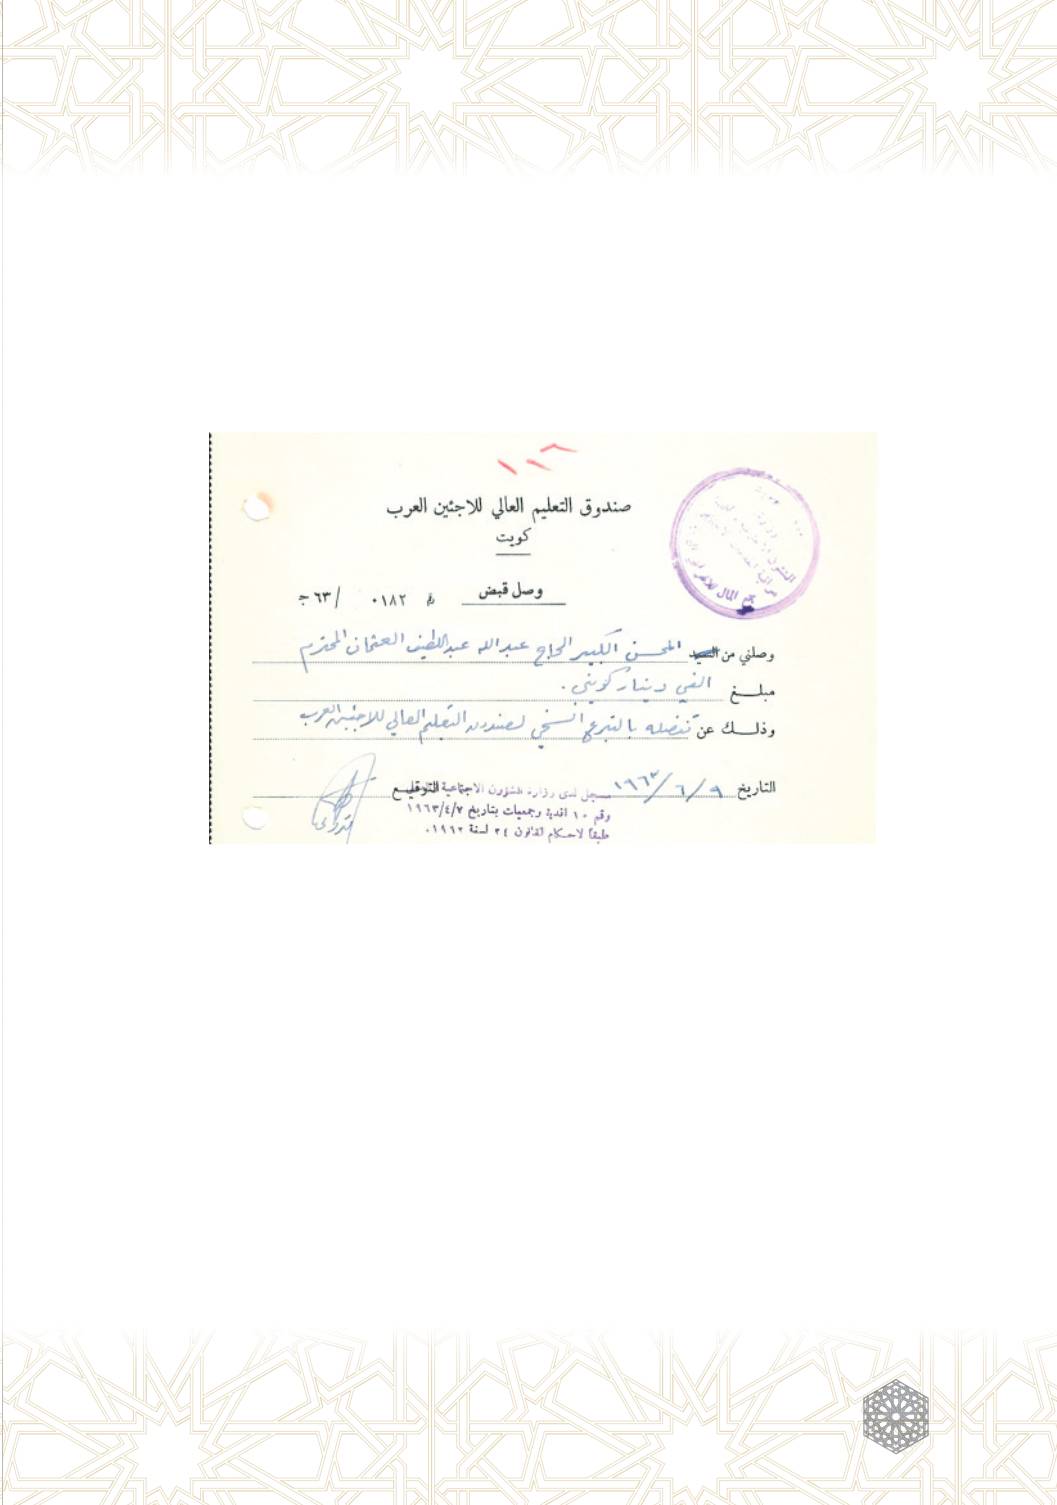 صندوق التعليم العالي للاجئين العرب
كويت
وصل قبض
رقم ٠١٨٢ /٦٣ ج
وصلني من السيد المحسن الكبير الحاج عبدالله عبداللطيف العثمان المحترم
مبلغ الفي دينار كويتي .
وذلك عن تفضله بالتبرع السخي لصندوق التعليم العالي للاجئين العرب
التاريخ ٩/٦/١٩٦٣ التوقيع
مسجل لدى وزارة الشؤون الاجتماعية
رقم ١٠ اندية وجمعيات بتاريخ ١٩٦٣/٤/٧
طبقا لاحكام القانون ٢٤ لسنة ١٩٦٢.